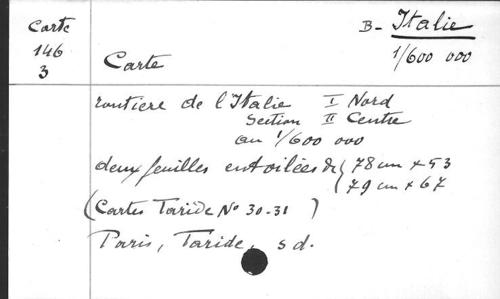 Carte
146
3
B- Italie
1/600 000
Carte
routière de l'Italie I Nord
Section II Centre
au 1/600 000
deux feuilles entoilées de { 78 cm x 53
79 cm x 67
(Cartes Taride No 30-31)
Paris, Taride, s d.